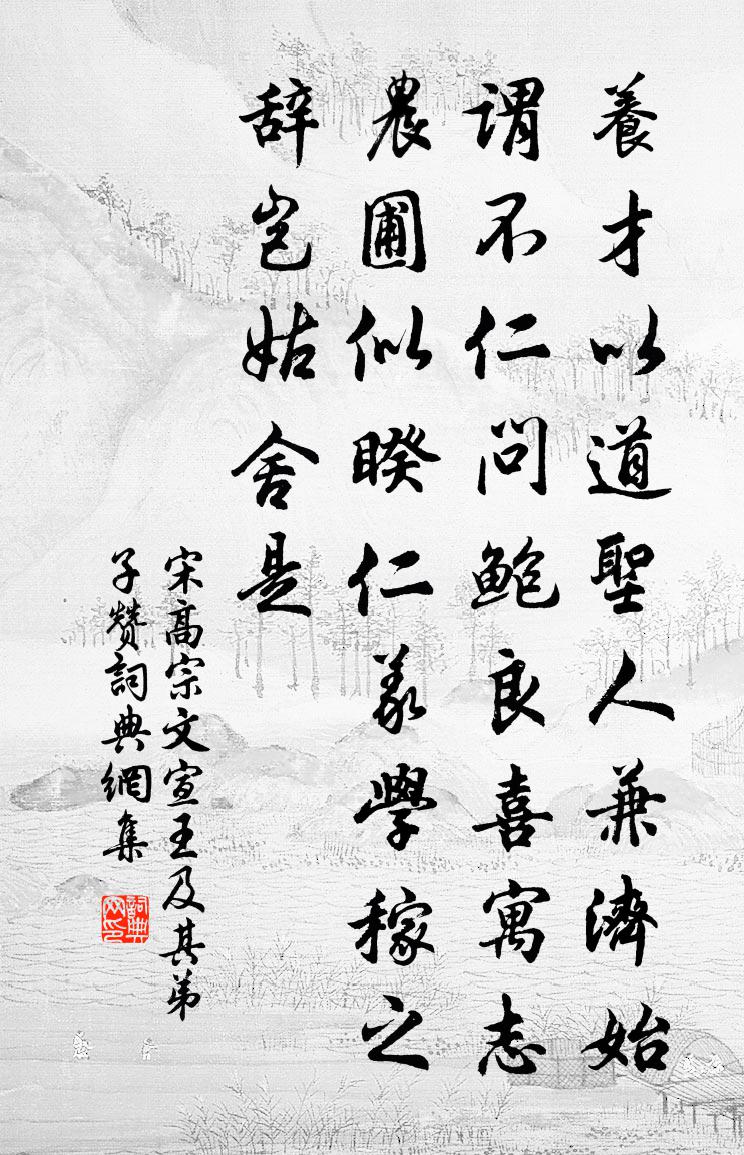 養才以道聖人兼濟始
謂不仁問鮑良喜寓志
農圃似睽仁義學稼之
辞岂姑舍是
宋高宗文宣王及其弟
子赞詞典網集
詞典网印